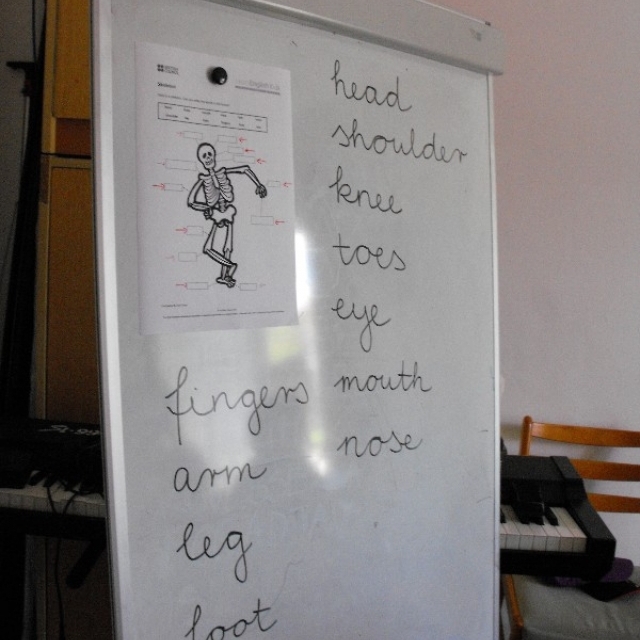 head
shoulder
knee
toes
eye
mouth
nose
fingers
arm
leg
foot